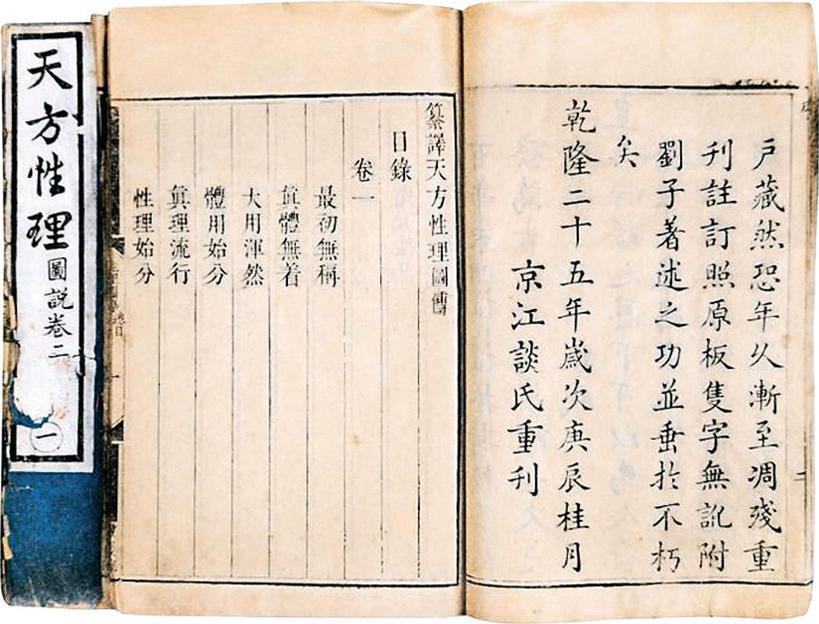 天方性理
圖說卷二
一
戶藏然恐年久漸至凋殘重
刊註訂照原板隻字無訛附
劉子著述之功並垂於不朽
矣
乾隆二十五年歲次庚辰桂月
京江談氏重刊
二
纂譯天方性理圖傳
目錄
卷一
最初無稱
眞體無着
大用渾然
體用始分
眞理流行
性理始分